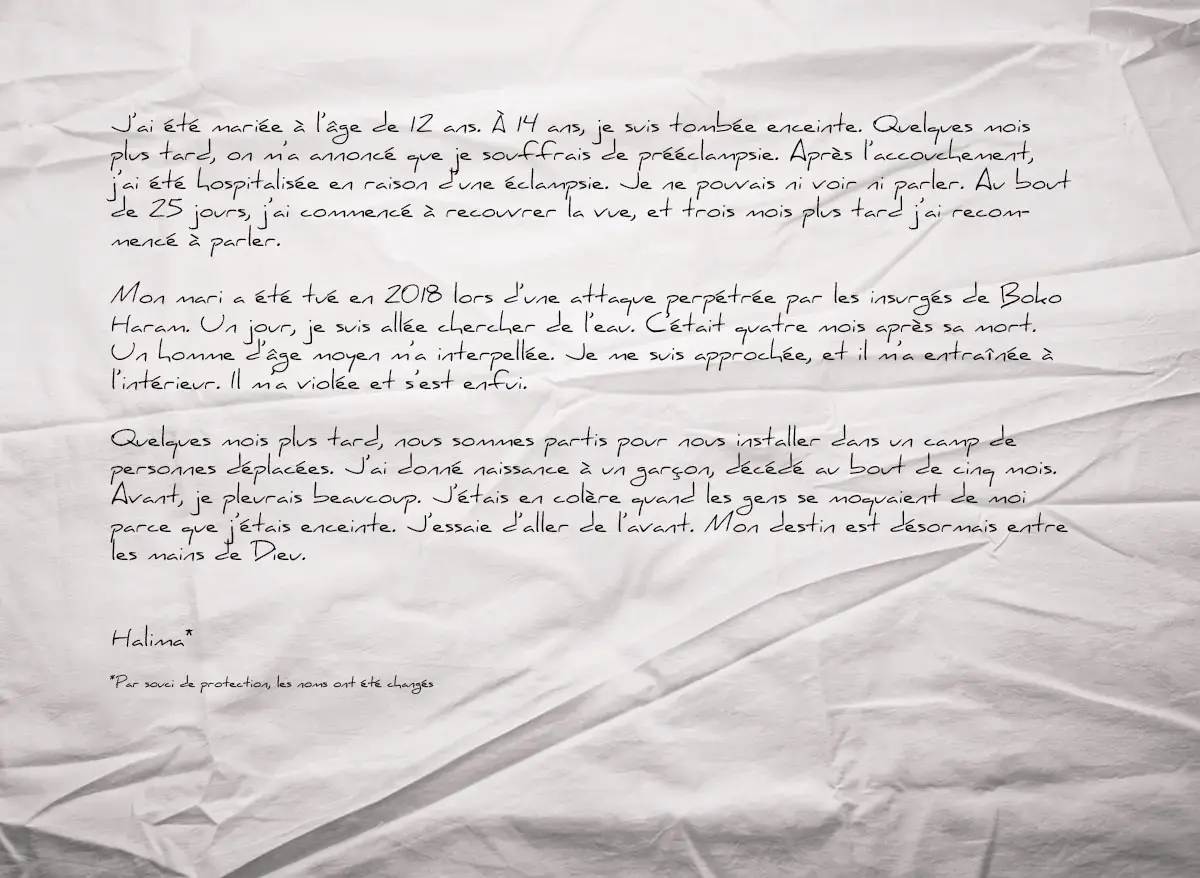 J'ai été mariée à l'âge de 12 ans. À 14 ans, je suis tombée enceinte. Quelques mois
plus tard, on m'a annoncé que je souffrais de prééclampsie. Après l'accouchement,
j'ai été hospitalisée en raison d'une éclampsie. Je ne pouvais ni voir ni parler. Au bout
de 25 jours, j'ai commencé à recouvrer la vue, et trois mois plus tard j'ai recom-
mencé à parler.
Mon mari a été tué en 2018 lors d'une attaque perpétrée par les insurgés de Boko
Haram. Un jour, je suis allée chercher de l'eau. C'était quatre mois après sa mort.
Un homme d'âge moyen m'a interpellée. Je me suis approchée, et il m'a entraînée à
l'intérieur. Il m'a violée et s'est enfui.
Quelques mois plus tard, nous sommes partis pour nous installer dans un camp de
personnes déplacées. J'ai donné naissance à un garçon, décédé au bout de cinq mois.
Avant, je pleurais beaucoup. J'étais en colère quand les gens se moquaient de moi
parce que j'étais enceinte. J'essaie d'aller de l'avant. Mon destin est désormais entre
les mains de Dieu.
Halima*
*Par souci de protection, les noms ont été changés